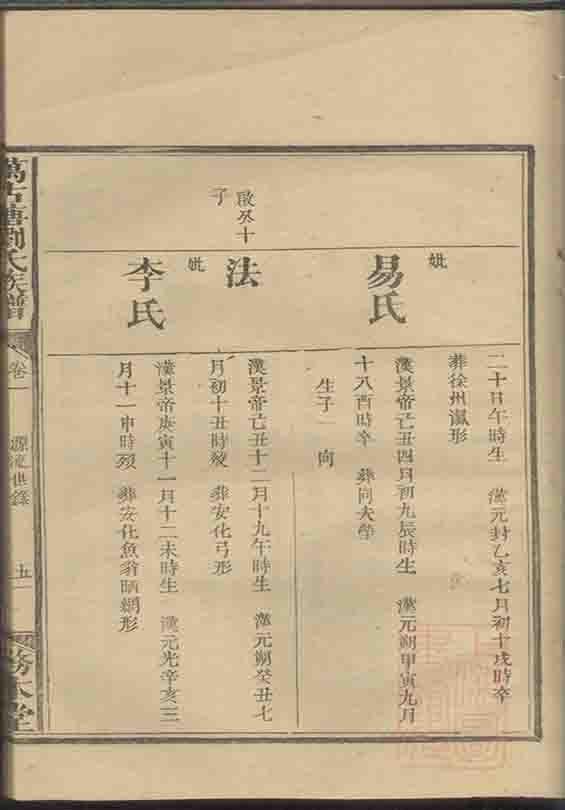 二十日午時生 漢元封乙亥七月初十戌時卒
葬徐州瀛形
妣
易氏
漢景帝己丑四月初九辰時生 漢元朔甲寅九月
十八酉時卒 葬同夫塋
生子一 向
啟癸十
子
法
漢景帝己丑十二月十九午時生 漢元朔癸丑七
月初十丑時歿 葬安化弓形
妣
李氏
漢景帝庚寅十一月十二未時生 漢元光辛亥三
月十一申時歿 葬安化魚翁晒網形
萬古塘劉氏族譜
卷一 源流世錄
五
務本堂